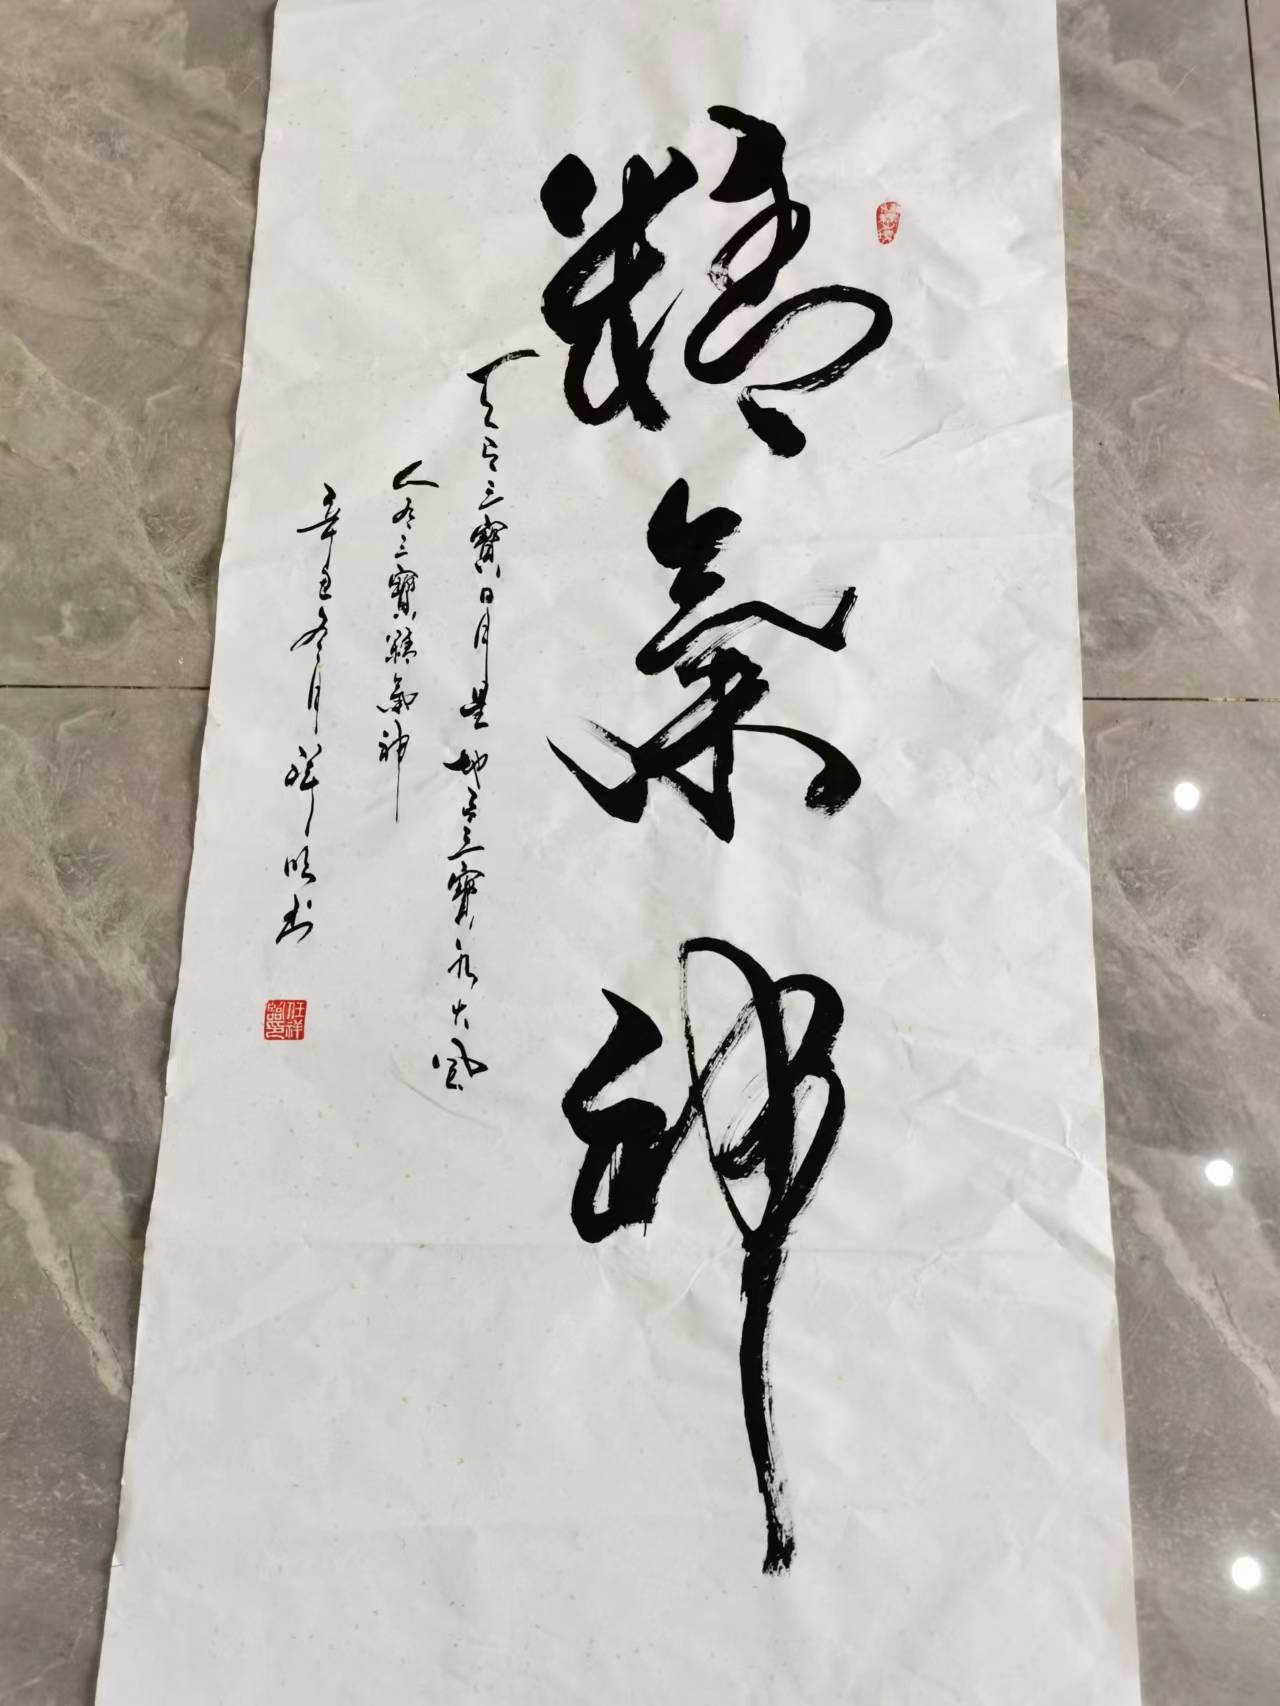 精氣神
天有三寶日月星地有三寶水火風
人有三寶精氣神
辛丑冬月祥明書
任祥